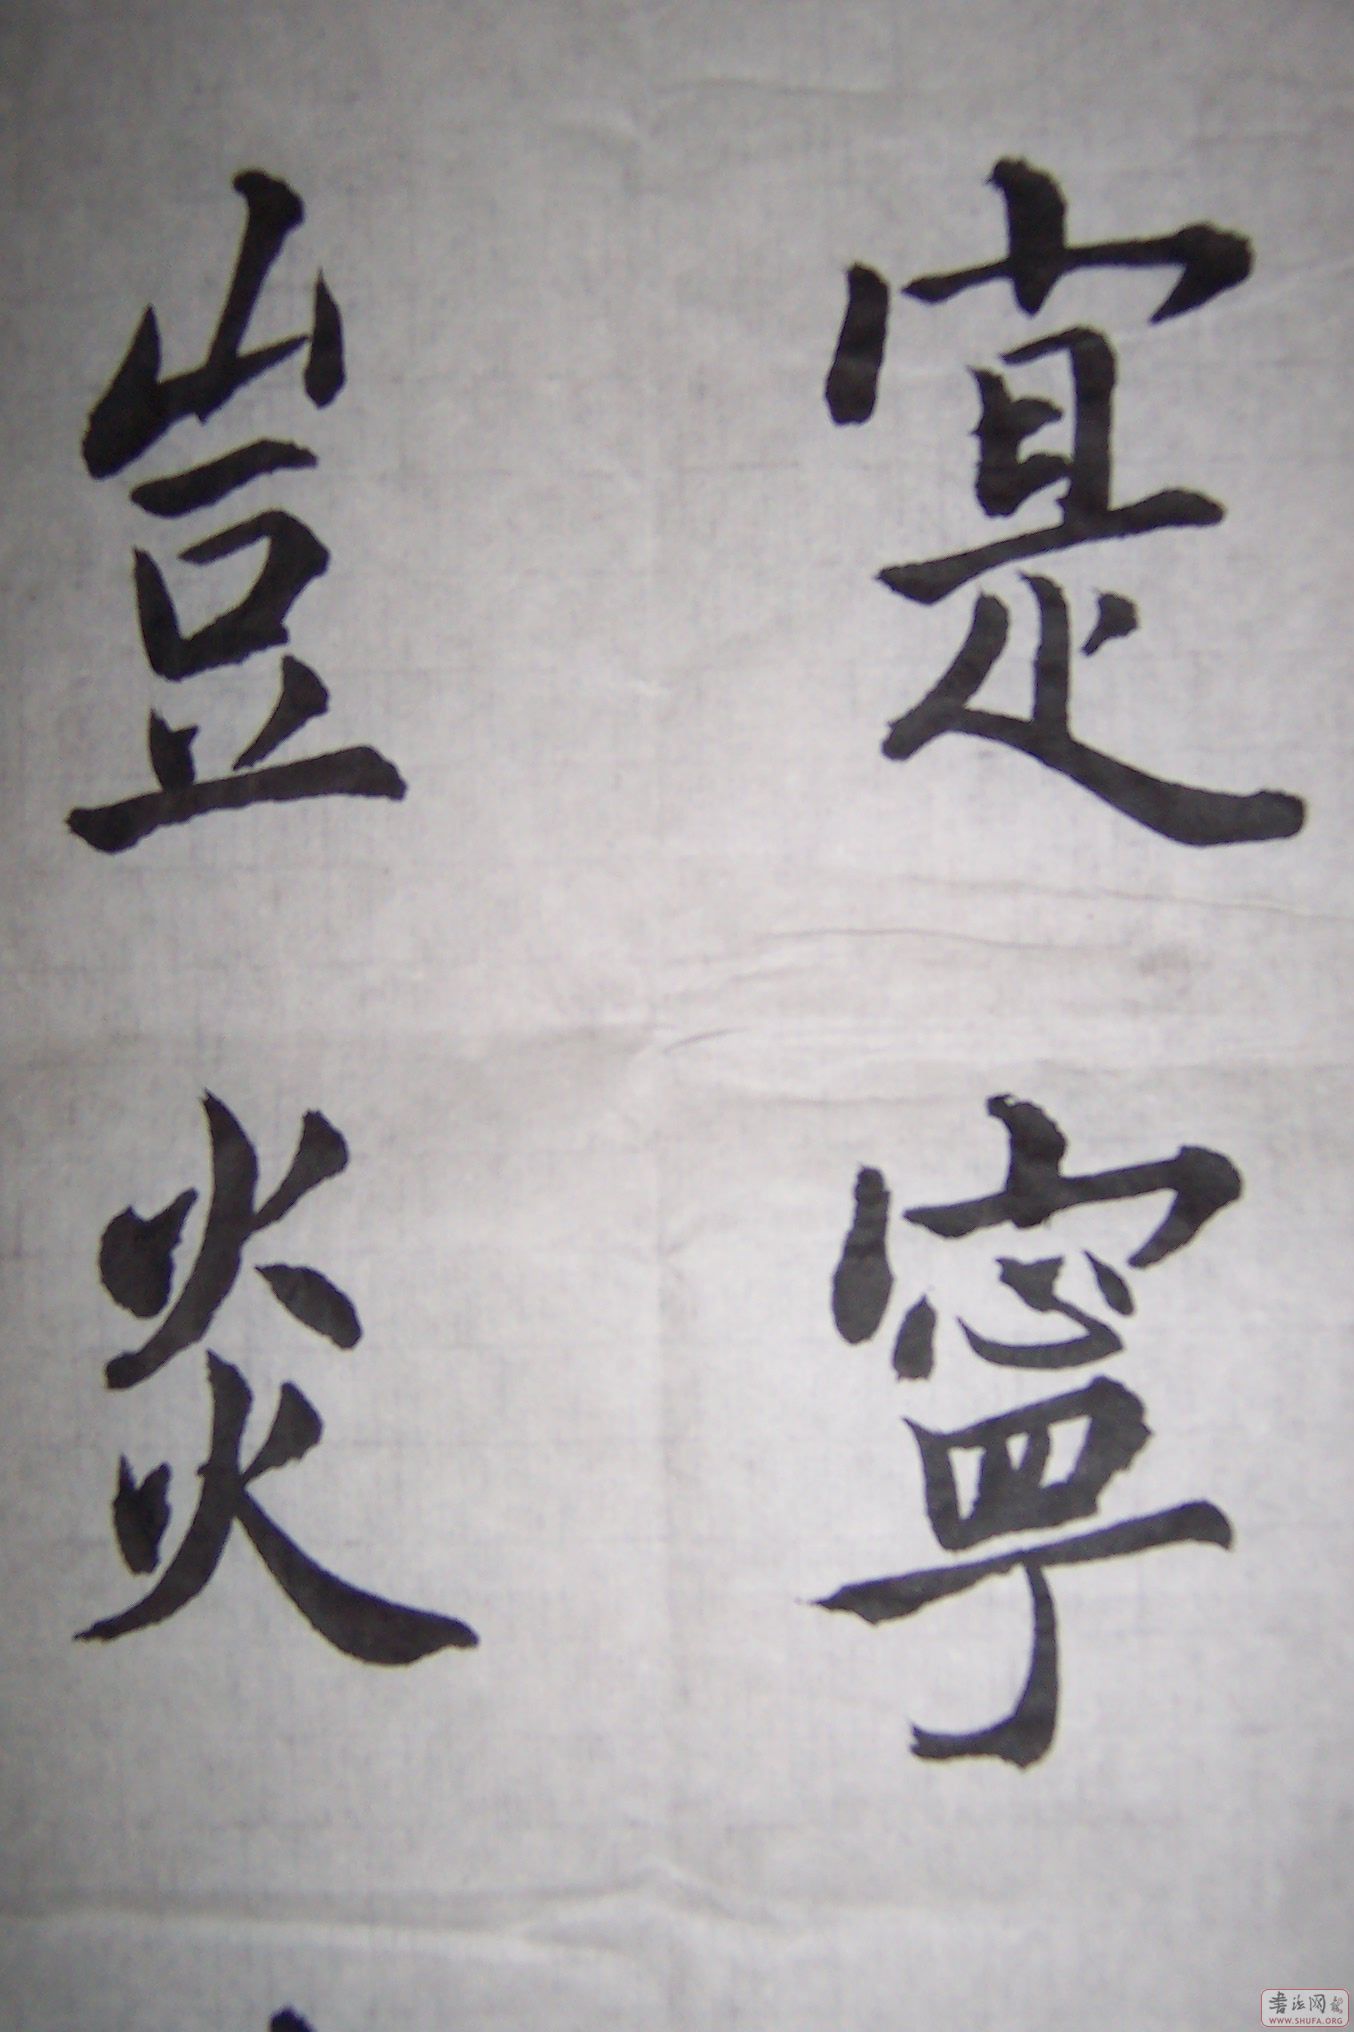 寔寧
豈炎
書法网
WWW.SHUFA.ORG